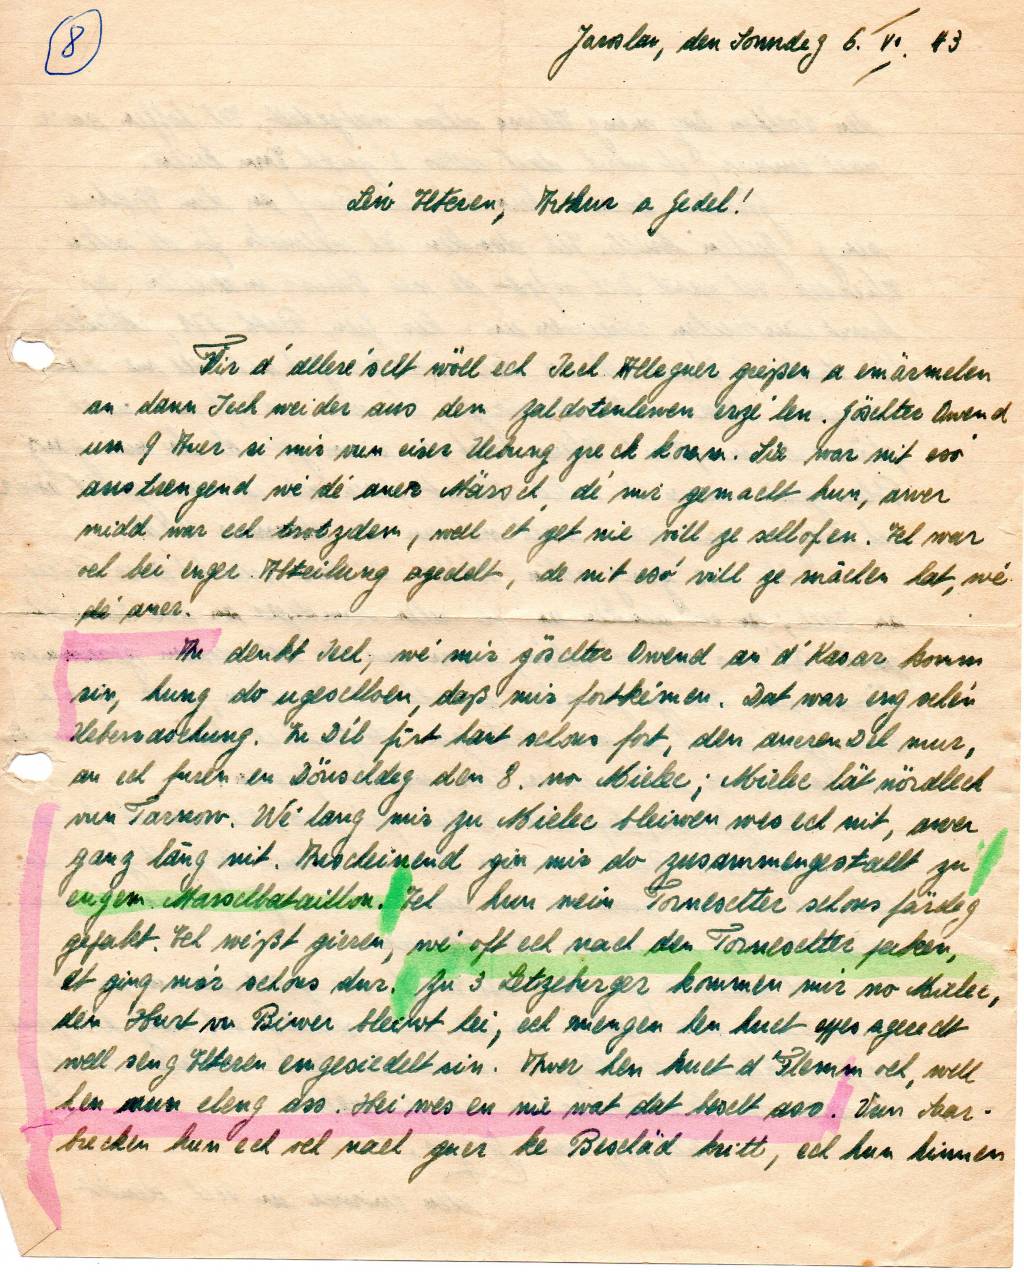 8
Jaroslau, den Sonndeg 6. VI. 43
Léiw Elteren, Arthur a Gedel!
Fir d' alleréischt wöll ech Iech Alleguer gréißen a emärmelen
an dann Iech weider aus dem Zaldotenlewen erzélen. Göschter Owend
um 9 Auer si mir vun eiser Uebung zreck komm. Sie war nit esó
anstrengend wé dé aner Märsch, dé mir gemacht hun, awer
midd war ech trotzdem, well ét get nie vill ze schlofen. Ech war
och bei enger Abteilung agedelt, de nit esó vill ze mächen hat, wé
dé aner.
An denkt Iech, wé mir göschter Owend an d' Kasär komm
sin, hung do ugeschloen, daß mir fortkémen. Dat war eng schén
Ueberraschung. En Dél firt haut schons fort, den aneren Dél mur,
an ech furen en Dönschdeg den 8. no Mielec; Mielec lät nördlech
vun Tarnow. Wé lang mir zu Mielec bleiwen wes ech nit, awer
ganz läng nit. Anscheinend gin mir do zusammengestallt zu
engem Marschbataillon. Ech hun mein Torneschter schons färdeg
gepakt. Ech wéißt gieren, wé oft ech nach den Torneschter paken,
ét ging mär schons dur. Zu 3 Letzeburger kommen mir no Mielec,
den Hurt vu Biwer bleiwt hei, ech mengen hen huet eppes ageredt
well seng Elteren emgesiedelt sin. Awer hen huet d' Flemm och, well
hen nun eleng ass. Hei wes en nie wat dat bescht ass. Vun Saar-
brecken hun ech och nach guer ke Beschäd kritt, ech hun hinnen